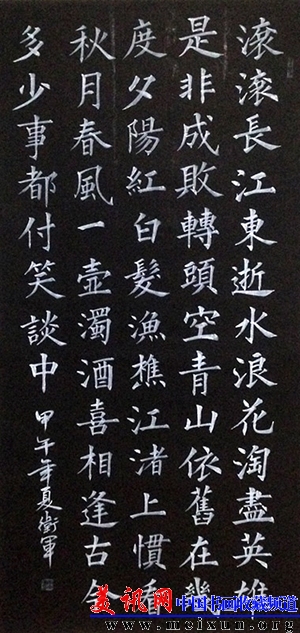 滾滾長江東逝水浪花淘盡英雄
是非成敗轉頭空青山依舊在幾
度夕陽紅白髮漁樵江渚上慣看
秋月春風一壺濁酒喜相逢古今
多少事都付笑談中
甲午年夏衛軍
美讯网 中国书画收藏频道
www.meixun.org